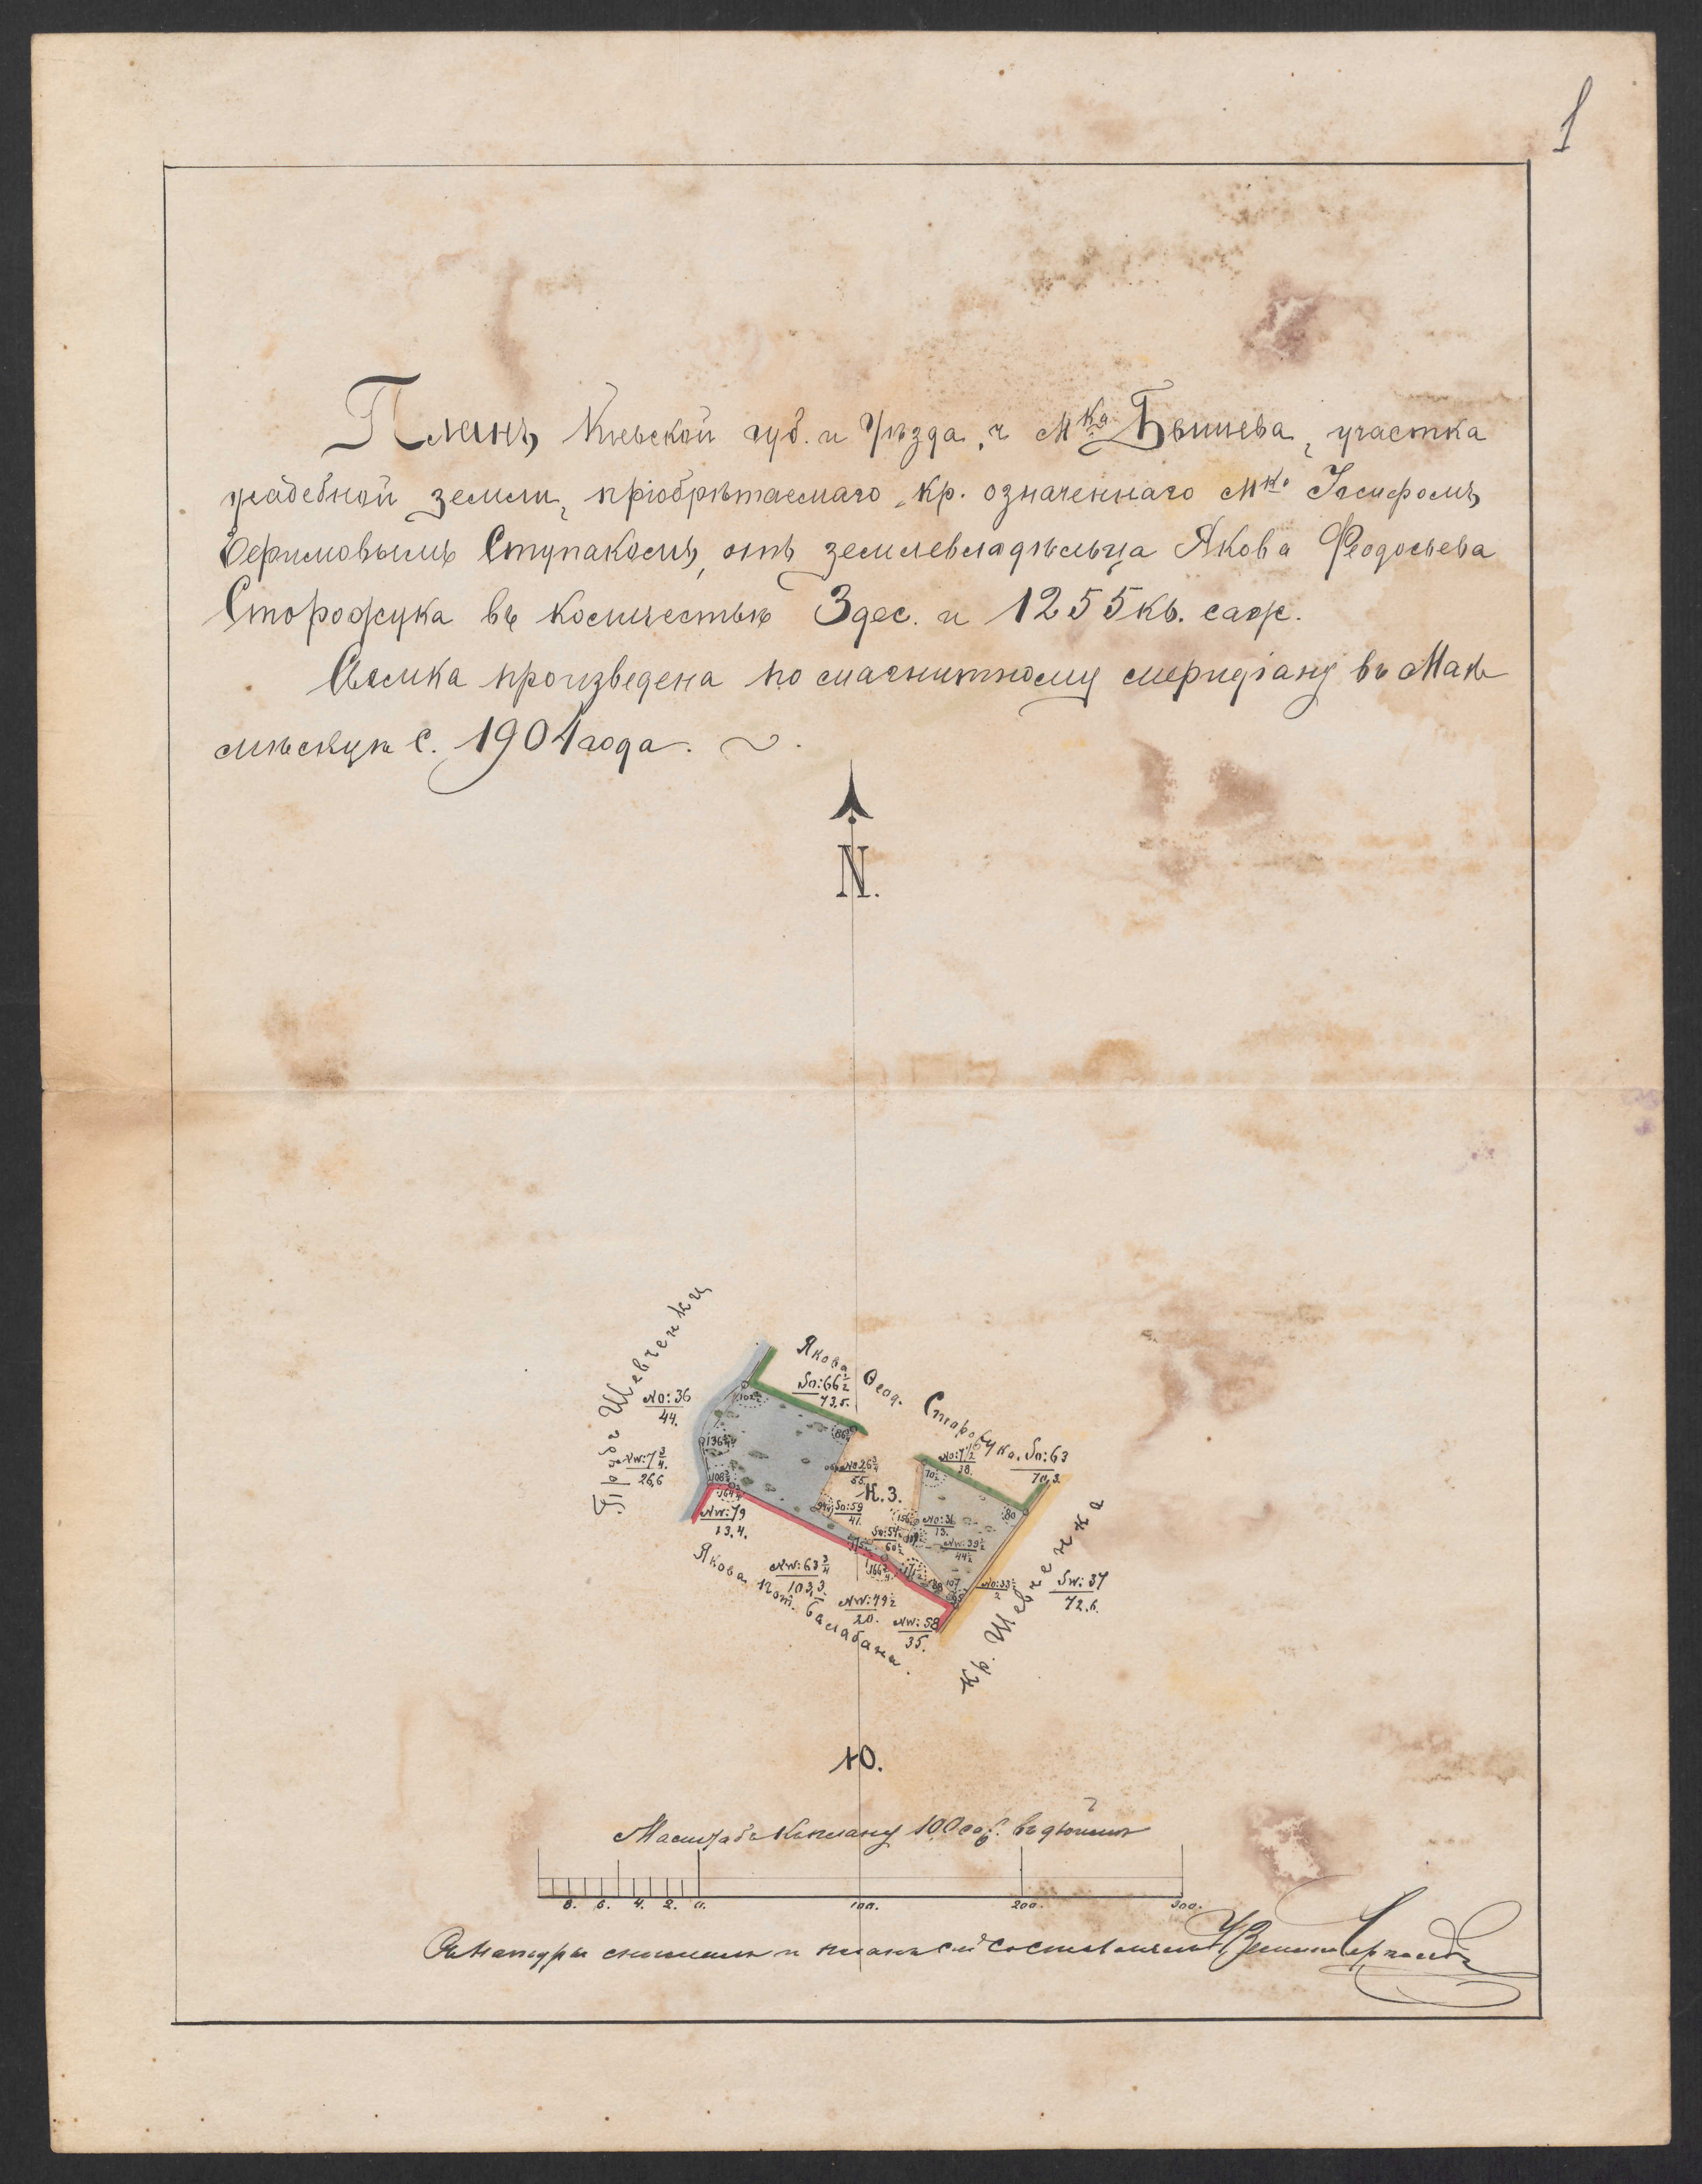 1
Планъ Кіевской губ. и Уѣзда, ч. Мка Бышева, участка
усадебной земли, пріобрѣтаемаго кр. означеннаго Мка Іосифомъ
Ступакомъ, отъ землевладѣльца Якова Феодосьева
Сторожука въ количествѣ 3 дес. и 1255 кв. саж.
Съемка произведена по магнитному меридіану въ Маѣ
мѣсяцѣ с. 1904 года.
N.
Шевченки
Якова Феод. Сторожука.
So: 66 1/2
73,5.
NO: 36
44.
NW: 7 3/4.
26,6
NW: 79
13,4.
NW: 63 3/4
103,3
NW: 49 1/2
20.
NW: 58
35.
NO: 26 3/4
55.
К. З.
So: 59
41.
So: 54
60 1/2
NO: 31
13.
NW: 39 1/2
44 1/2
NO: 71 1/2
38.
So: 63
70,3.
NO: 33 1/2
SW: 37
72,6.
Якова Балабана.
Кр. Шевченка
Ю.
Масштабъ къ плану 100 саж. въ дюймѣ
8. 6. 4. 2. 0. 100. 200. 300.
Съ натуры снималъ и планъ сей составлялъ